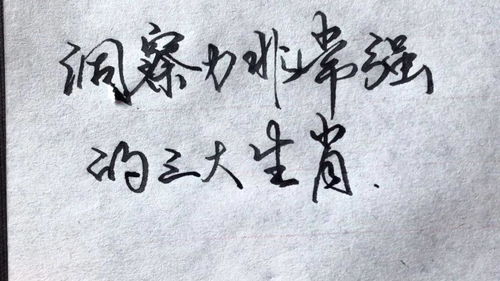 洞察力非常强
的三大生肖.